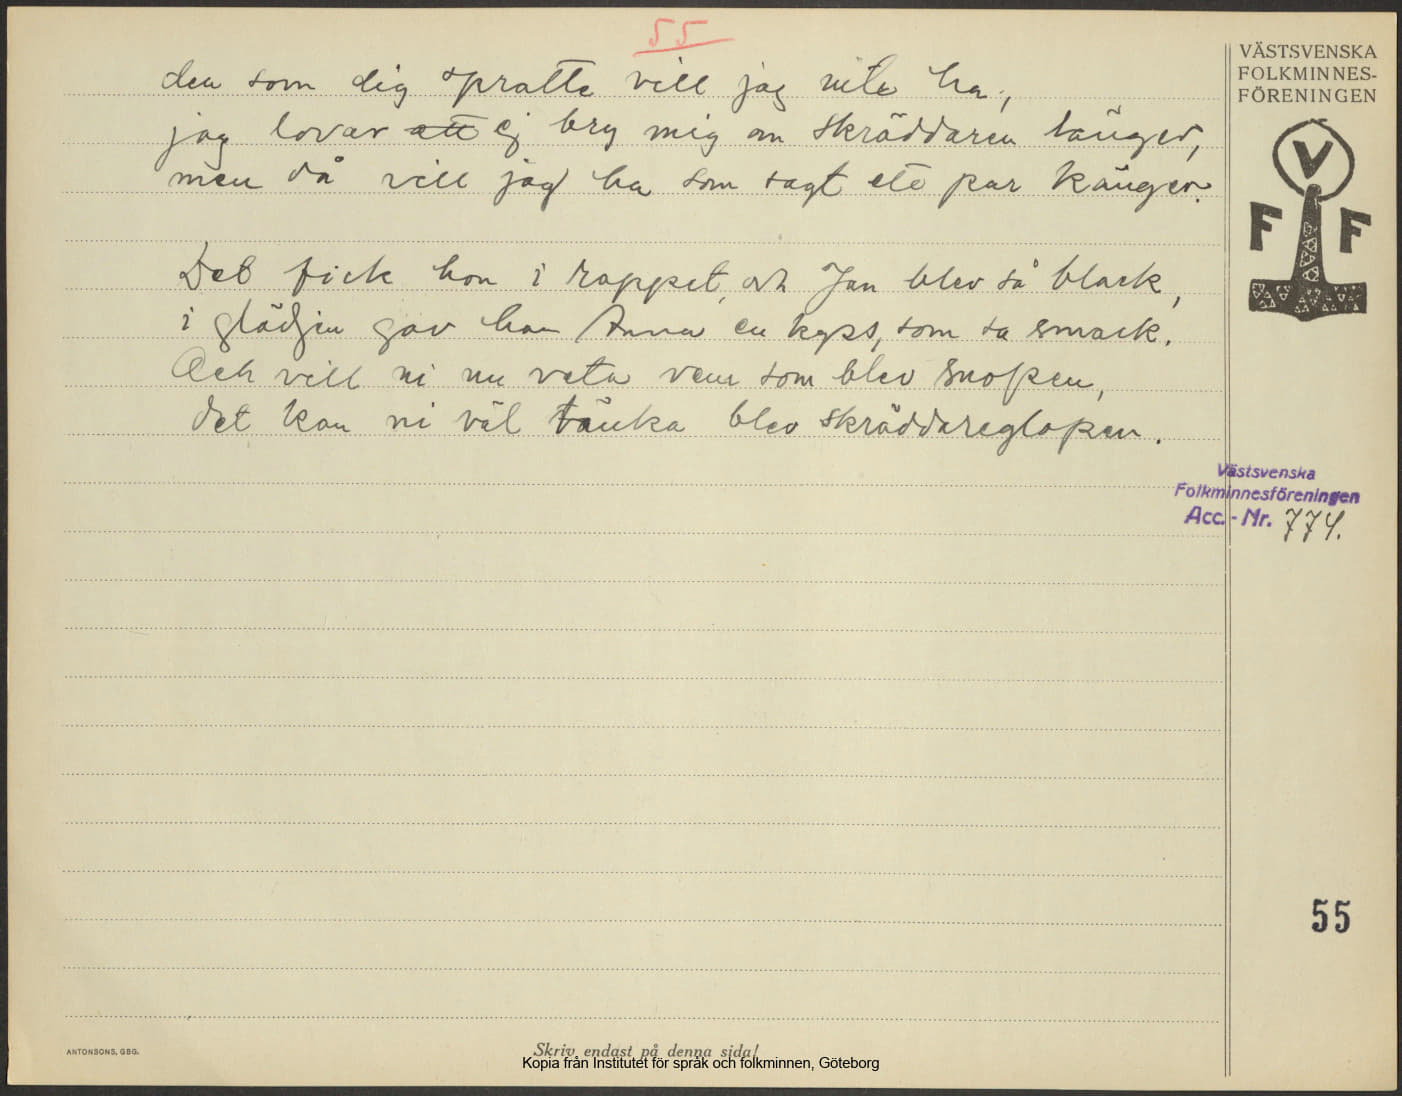 55
den som dig spratte vill jag inte ha,
jag lovar att ej bry mig om skräddaren länger,
men då vill jag ha som sagt ett par känger.
Det fick hon i rappet, och Jan blev så black,
i glädjen gav han Anna en kyss, som sa smack.
Och vill ni nu veta vem som blev snopen,
det kan ni väl tänka blev skräddareglopen.
VÄSTSVENSKA
FOLKMINNES-
FÖRENINGEN
V
F F
Västsvenska
Folkminnesföreningen
Acc.-Nr. 774.
55
ANTONSONS, GBG.
Skriv endast på denna sida!
Kopia från Institutet för språk och folkminnen, Göteborg